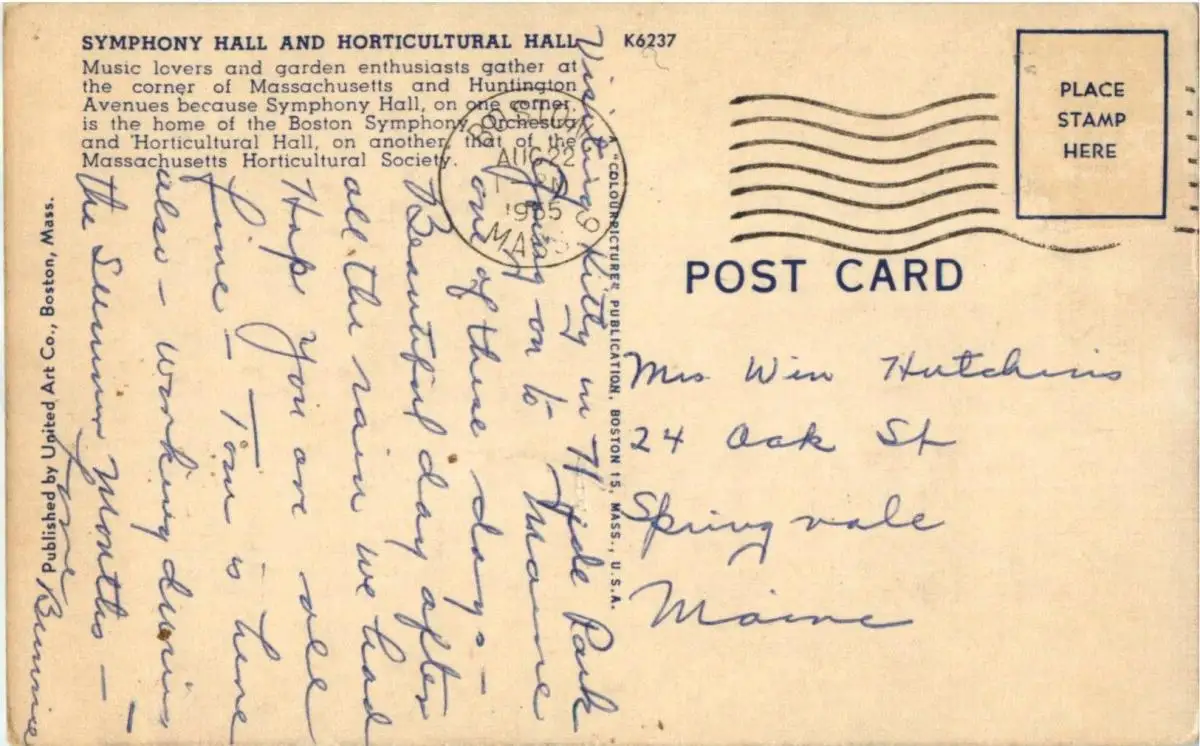 SYMPHONY HALL AND HORTICULTURAL HALL
Music lovers and garden enthusiasts gather at
the corner of Massachusetts and Huntington
Avenues because Symphony Hall, on one corner,
is the home of the Boston Symphony Orchestra
and Horticultural Hall, on another, that of the
Massachusetts Horticultural Society.
K6237
PLACE
STAMP
HERE
BOSTON
AUG 22
1955
MASS
POST CARD
Mrs Win Hutchins
24 Oak St
Springvale
Maine
Visiting Kitty in Hyde Park
Going on to Maine
one of these days -
Beautiful day after
all the rain we had
Hope you are all
fine - Tom is here
also - working during
the Summer Months -
Love
Bunnie
A "COLOURPICTURE" PUBLICATION, BOSTON 15, MASS., U.S.A.
Published by United Art Co., Boston, Mass.